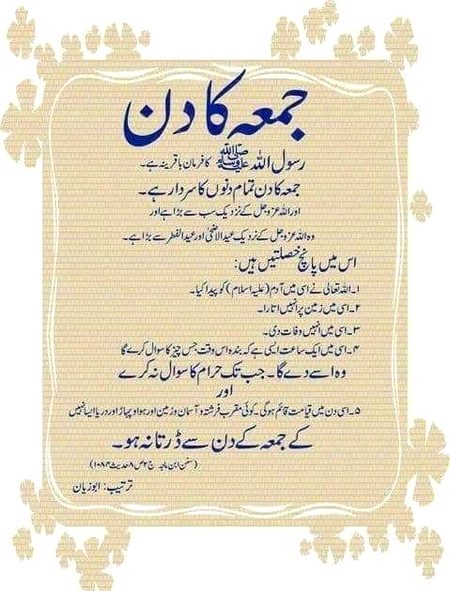 جمعہ کا دن
رسول اللہ ﷺ کا فرمان باقرینہ ہے۔
جمعہ کا دن تمام دنوں کا سردار ہے۔
اور اللہ عزوجل کے نزدیک سب سے بڑا ہے اور
وہ اللہ عزوجل کے نزدیک عید الاضحیٰ اور عید الفطر سے بڑا ہے۔
اس میں پانچ خصلتیں ہیں:
۱۔ اللہ تعالیٰ نے اسی میں آدم (علیہ السلام) کو پیدا کیا۔
۲۔ اسی میں زمین پر انہیں اتارا۔
۳۔ اسی میں انہیں وفات دی۔
۴۔ اسی میں ایک ساعت ایسی ہے کہ بندہ اس وقت جس چیز کا سوال کرے گا
وہ اسے دے گا۔ جب تک حرام کا سوال نہ کرے
اور
۵۔ اسی دن میں قیامت قائم ہوگی۔ کوئی مقرب فرشتہ و آسمان و زمین اور ہوا و پہاڑ اور دریا ایسا نہیں
کے جمعہ کے دن سے ڈرتا نہ ہو۔
(سنن ابن ماجہ ج ۲ ص ۸ حدیث ۱۰۸۴)
ترتیب: ابوزیان